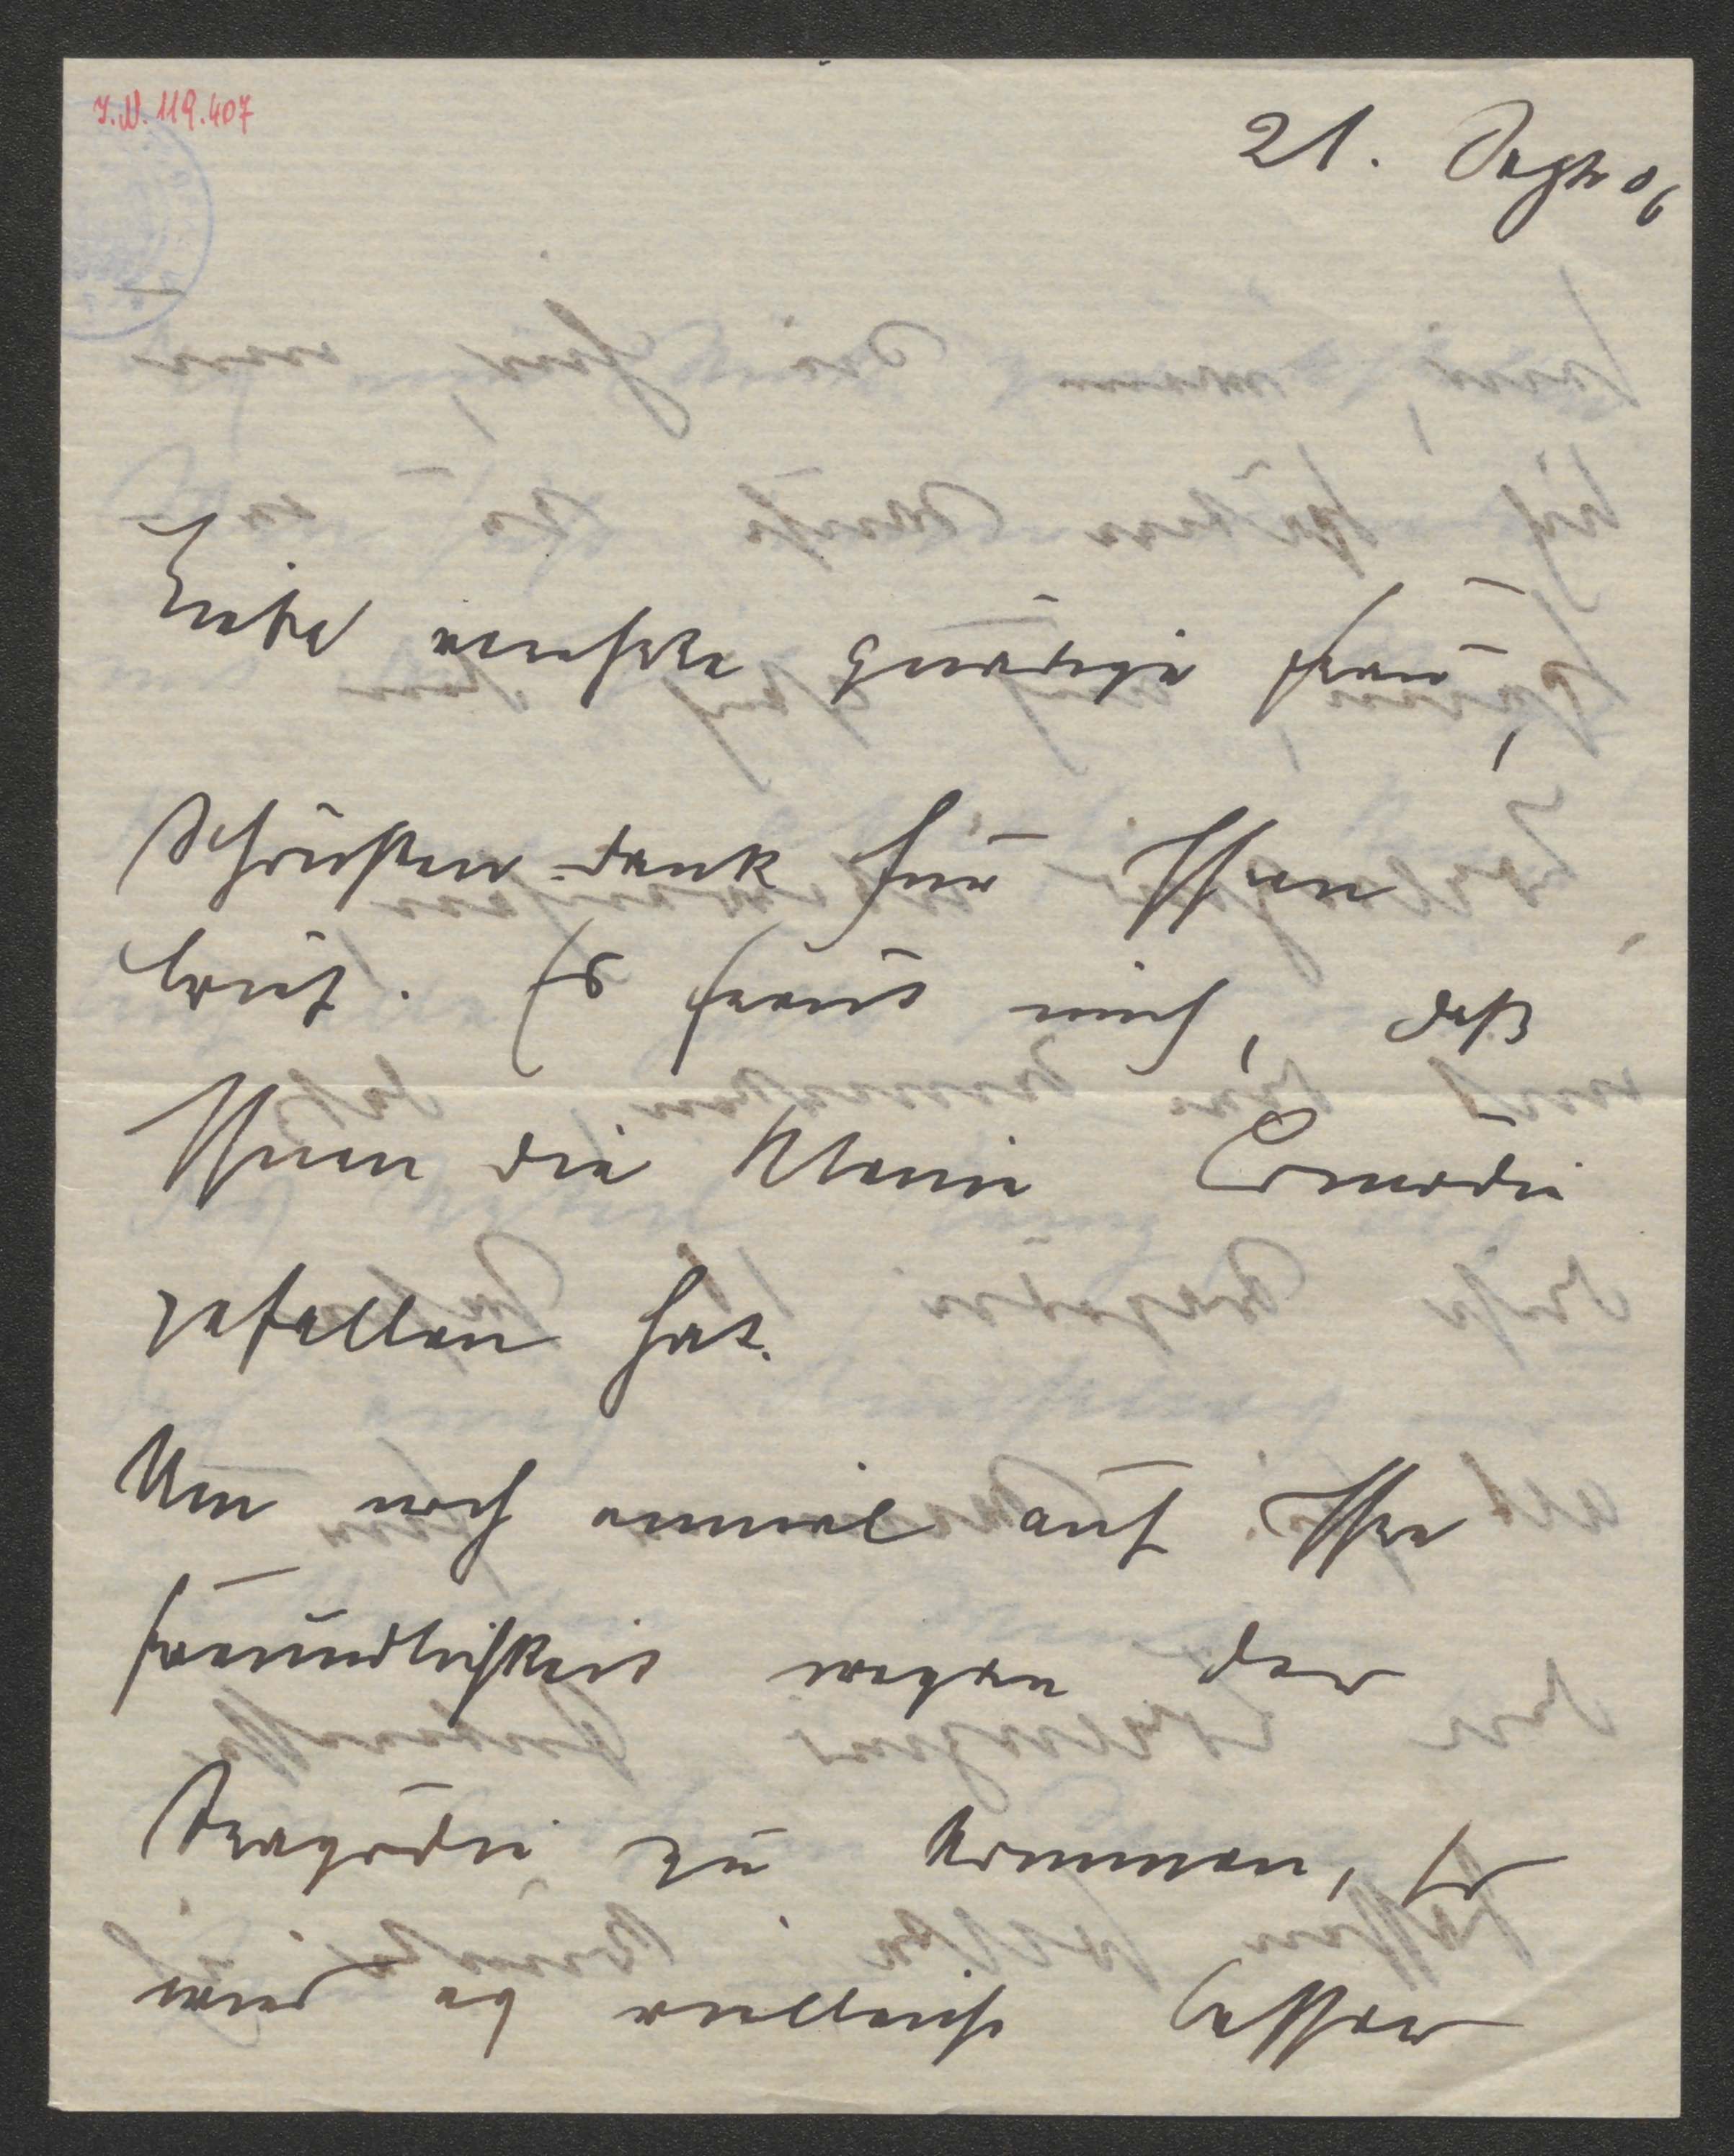 J.N. 119.407
21. 06
Liebe verehrte gnädige Frau,
Schönsten Dank für Ihren
Brief. Es freut mich, daß
Ihnen die kleine Comödie
gefallen hat.
Um noch einmal auf Ihre
Freundlichkeit wegen der
Tragödie zu kommen, so
wird es vielleicht besser